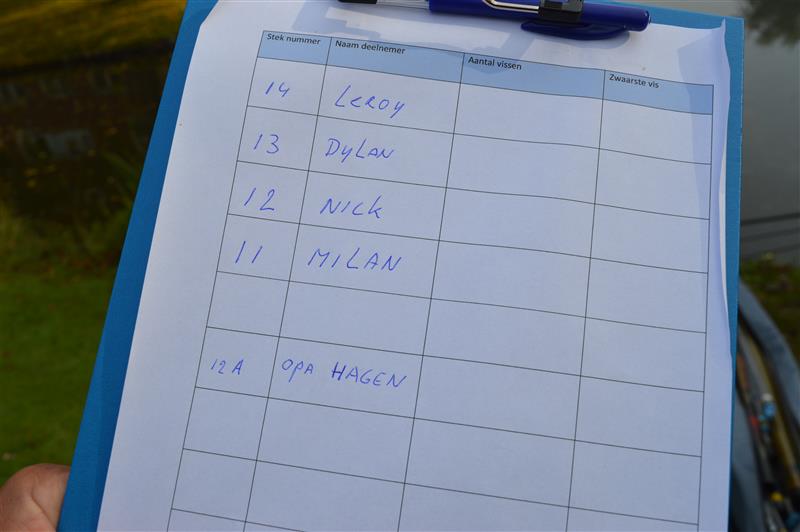 Stek nummer Naam deelnemer Aantal vissen Zwaarste vis
14 LEROY
13 DYLAN
12 NICK
11 MILAN
12A OPA HAGEN